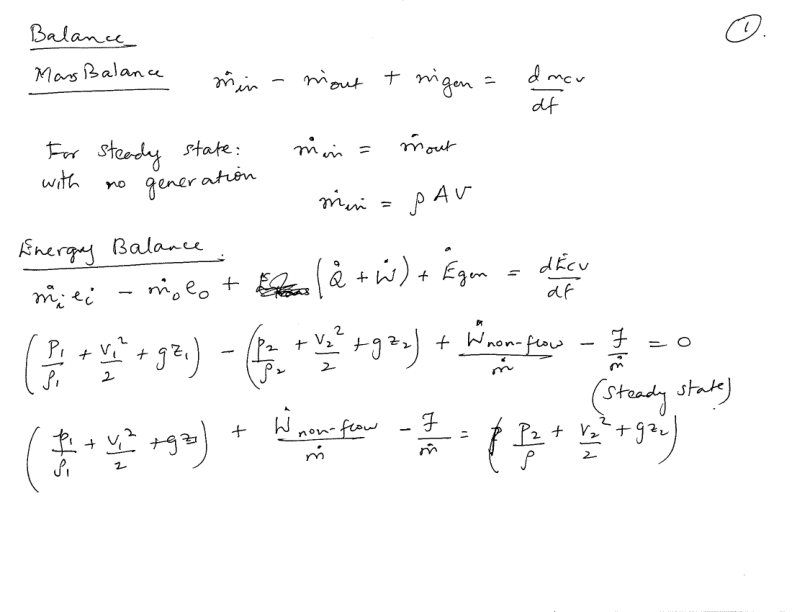 ①.
Balance
Mass Balance ṁin − ṁout + ṁgen = dmcv/dt
For steady state: ṁin = ṁout
with no generation
ṁin = ρAV
Energy Balance.
ṁᵢeᵢ − ṁₒeₒ + (Q̇ + Ẇ) + Ėgen = dEcv/dt
(P₁/ρ₁ + V₁²/2 + gz₁) − (P₂/ρ₂ + V₂²/2 + gz₂) + Ẇnon-flow/ṁ − F/ṁ = 0
(Steady state)
(P₁/ρ₁ + V₁²/2 + gz₁) + Ẇnon-flow/ṁ − F/ṁ = (P₂/ρ + V₂²/2 + gz₂)